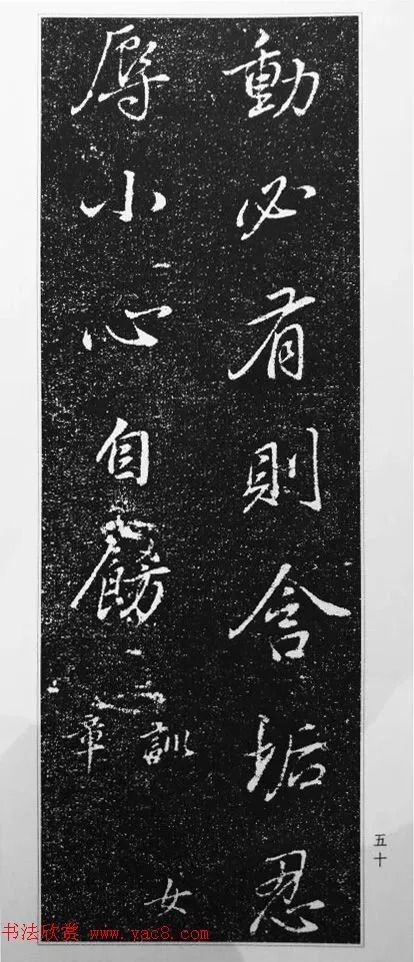 動必有則含垢忍
辱小心自飭
訓女
章
五十
书法欣赏 www.yac8.com